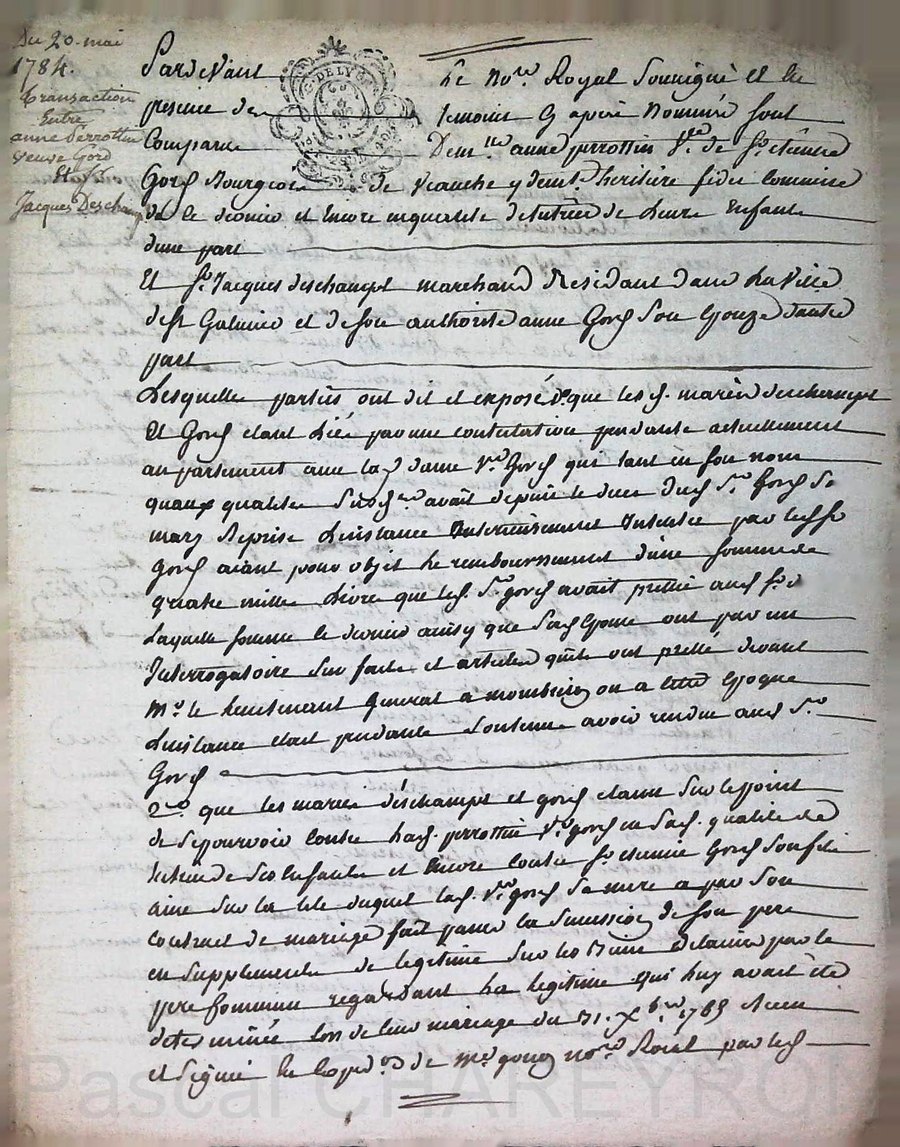 Du 20 mai
1784.
Transaction
Entre
anne Perrottin
veuve Gord
Et Sr
Jacques Deschamp
Pardevant Le Nore Royal Soussigné et les
presence des temoins cy après Nommés sont
Comparus Demlle anne perrottin Vve de Sr etienne
Gord Bourgeois de Veauche y demt héritière fidei Commise
de ce dernier et Encore en qualité de tutrice de Leurs Enfants
d'une part
Et Sr Jacques deschampt marchand Residant dans La Ville
de St Galmier et de son authorité anne Gord Son Epouze d'autre
part
Lesquelles parties ont dit et exposé que les d. mariés deschampt
Et Gord etant Liés par une contestation pendante actuellement
au parlement avec lad dame Vve Gord qui tant en son nom
quaux qualités avait depuis le deces dud Sr Gord Son
mary Reprise Linstance Intentée par led Sr
Gord aiant pour objet Le remboursement d'une somme de
quatre mille Livre que led. Sr gord avait prettée aud Sr
Laquelle somme le dernier ainsy que Sad Epouse ont par un
Interrogatoire Sur faits et articles quils ont pretté devant
Mr le Lieutenant General a montbrison ou a cette Epoque
Linstance etait pendante Soutenu avoir rendue aud Sr
Gord
2o. que les maries déschampt et gord etaient Sur le point
de Sepourvoir Contre Lad. perrottin Vve gord en Sad. qualité de
tutrice de Ses Enfants et Encore Contre Sr etienne Gord Son fils
ainé Sur la tete duquel Lad. Vve gord Sa mere a par Son
Contract de mariage fait passer la Succession de Son pere
en Supplement de legitime Sur les Biens delaissés par le
pere Commun regardant La legitime qui Luy avait été
determinée Lors de leur mariage du 31. Xbre 1765 Receu
et Signé En Expedon de Me gonon nore Royal par led
Pascal CHAREYRON